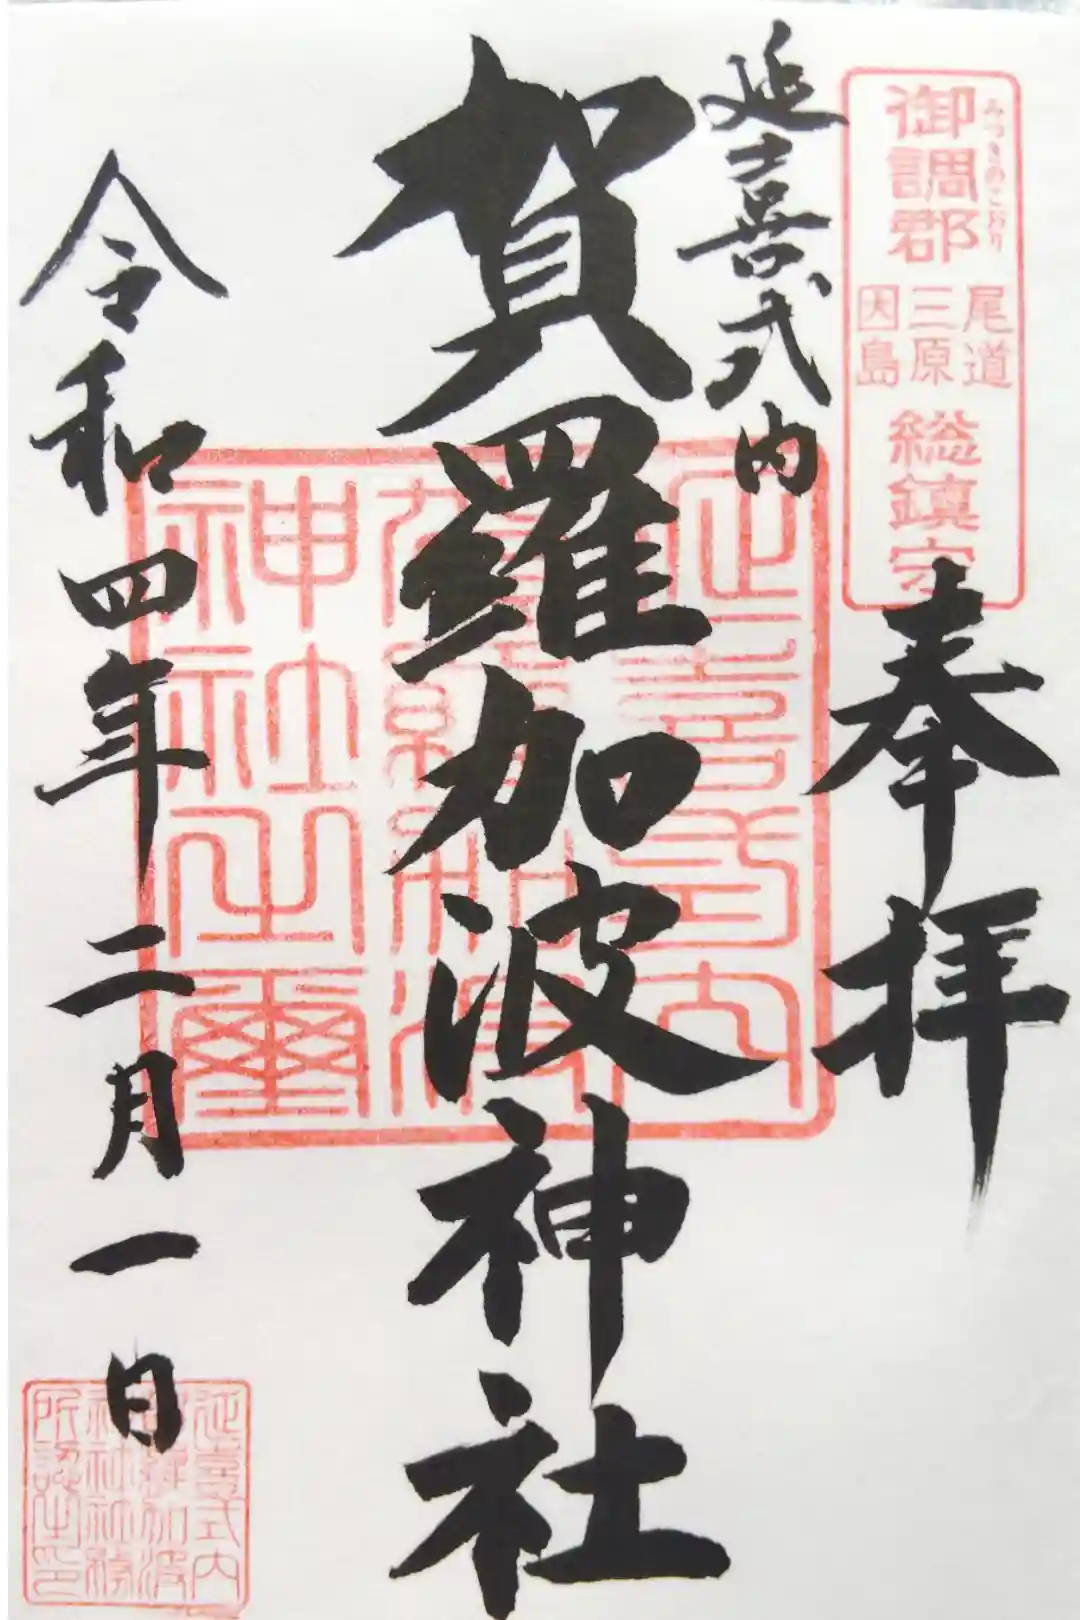 御調郡
みつきのこおり
尾道
三原
因島
総鎮守
奉拝
延喜式内
賀羅加波神社
令和四年二月一日
延喜式内
賀羅加波
神社之璽
延喜式内
賀羅加波
神社社務
所認之印